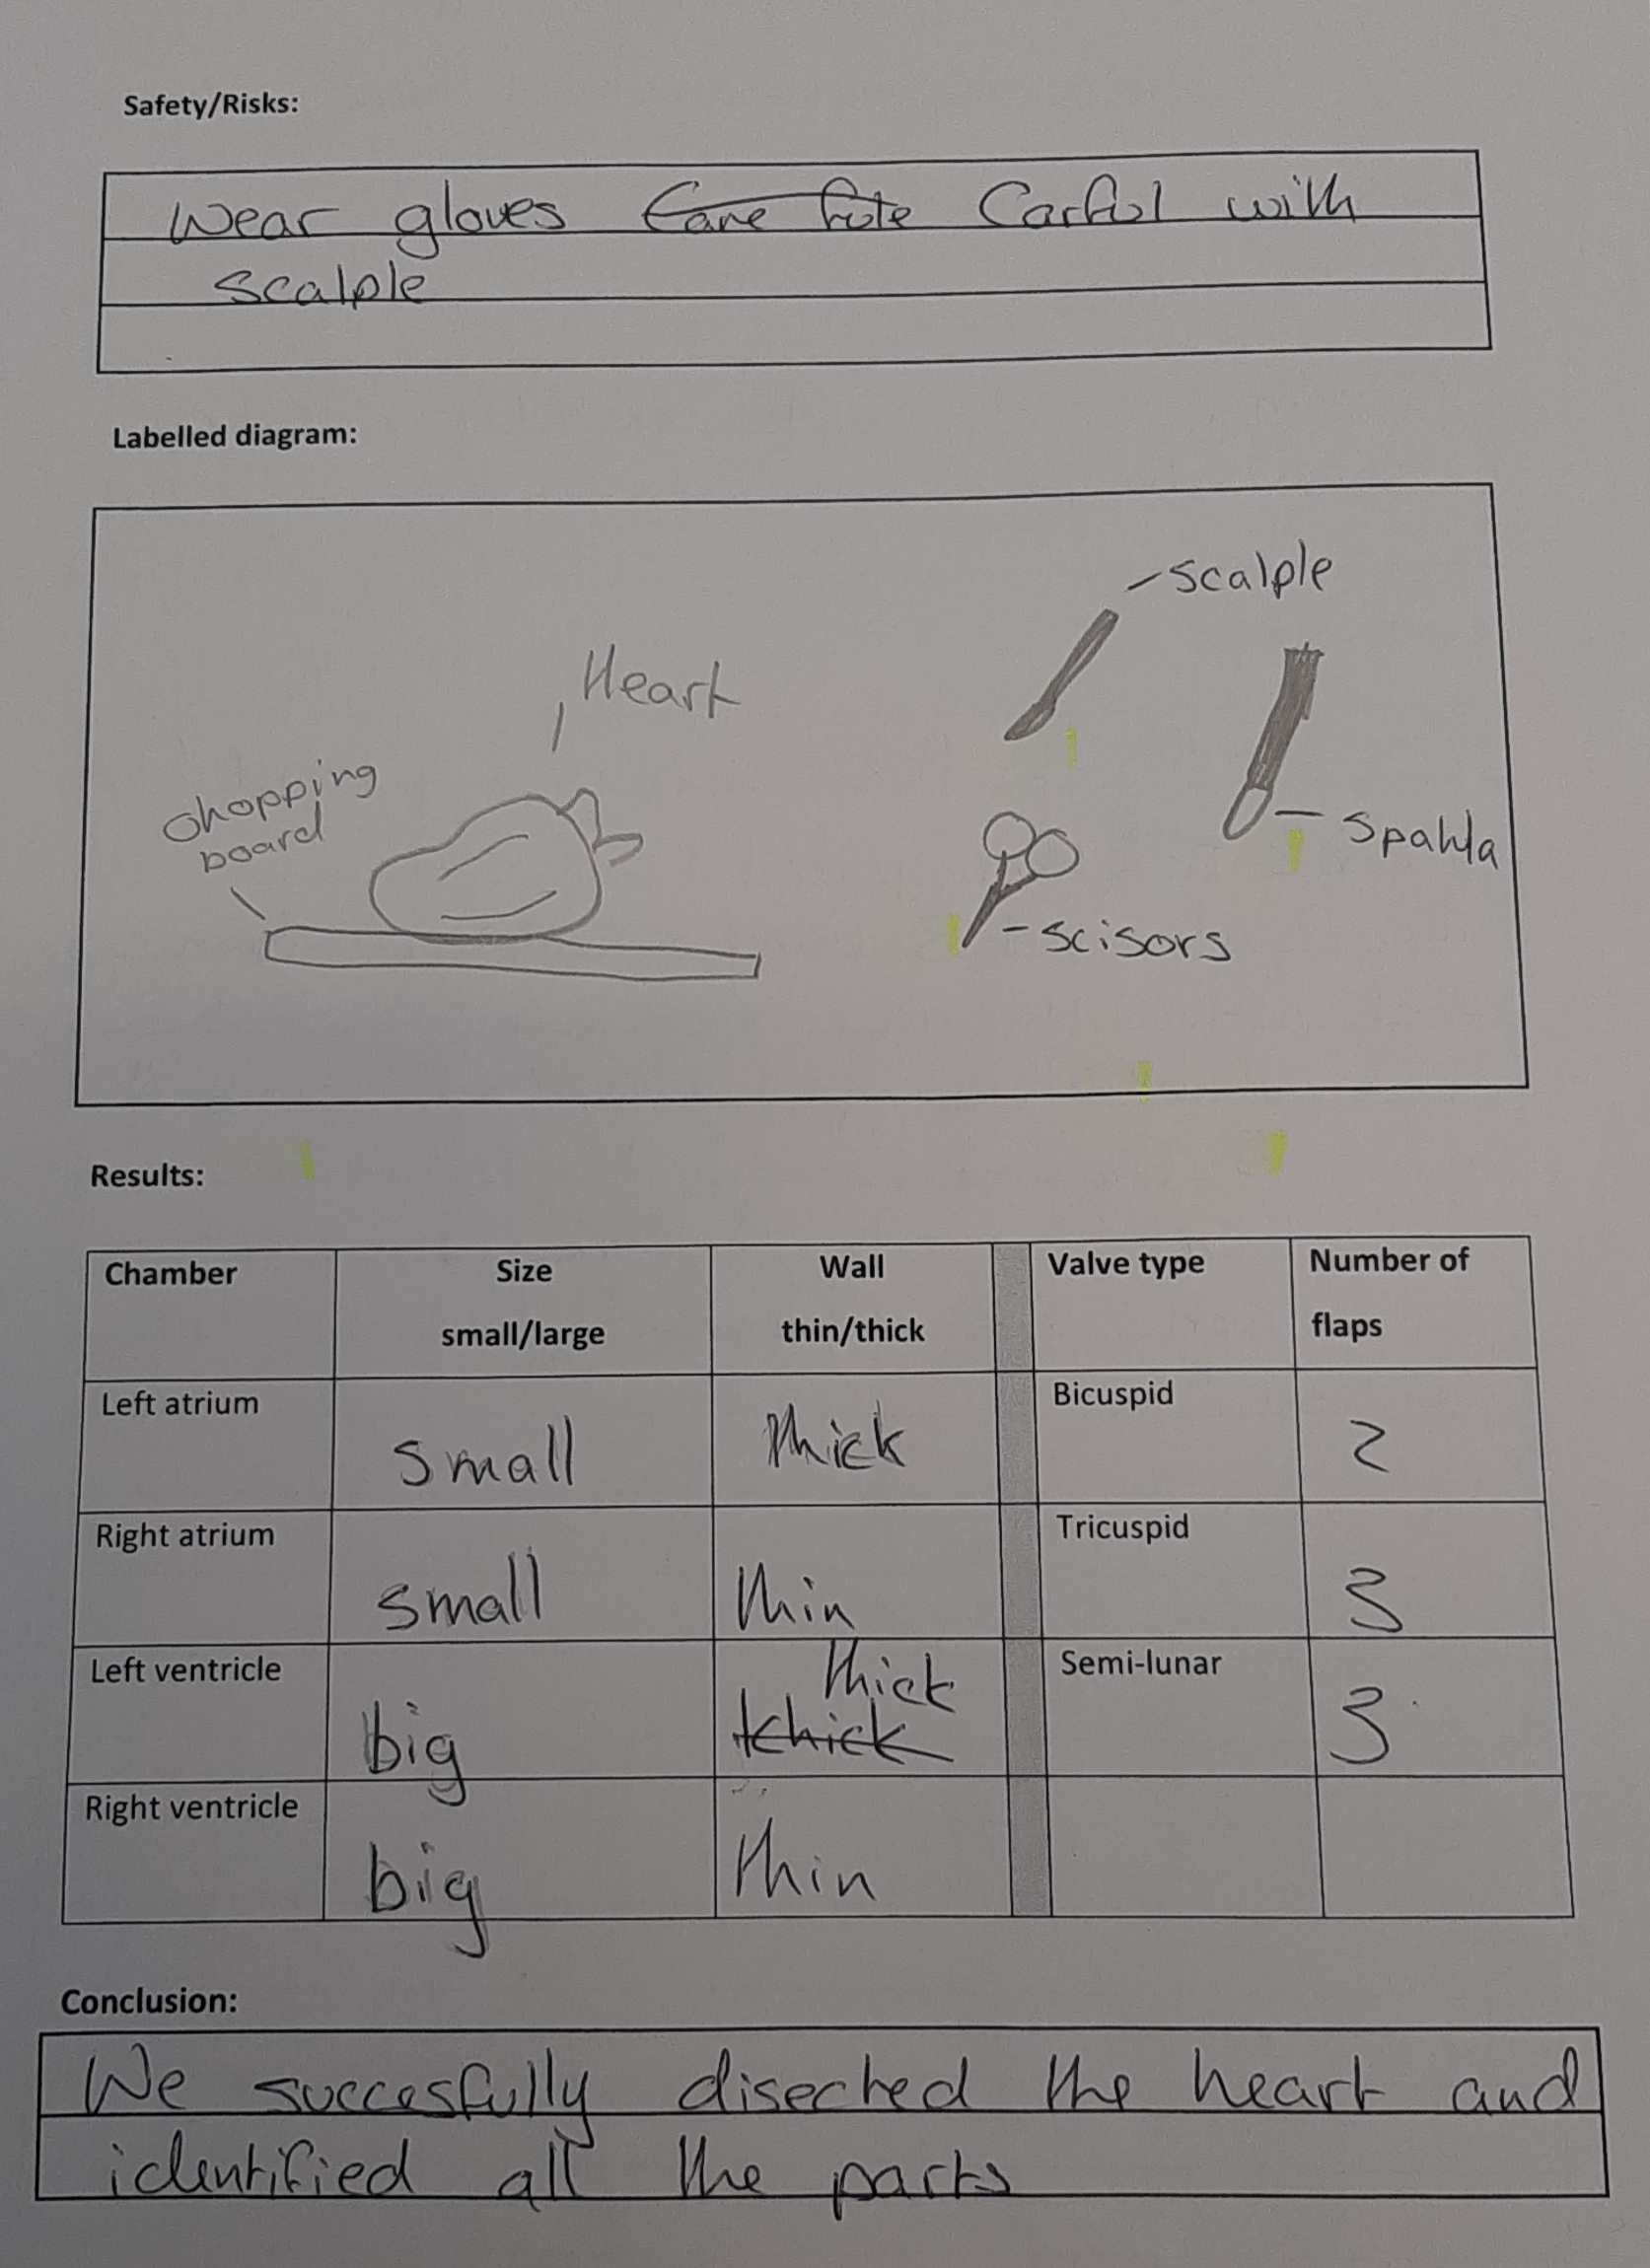 Safety/Risks:
Wear gloves Carful with
scalple
Labelled diagram:
scalple
Heart
chopping
board
spahla
scisors
Results:
Chamber Size Wall Valve type Number of
small/large thin/thick flaps
Left atrium small thick Bicuspid 2
Right atrium small thin Tricuspid 3
Left ventricle big thick Semi-lunar 3
tchick
Right ventricle big thin
Conclusion:
We succesfully disected the heart and
identified all the parts